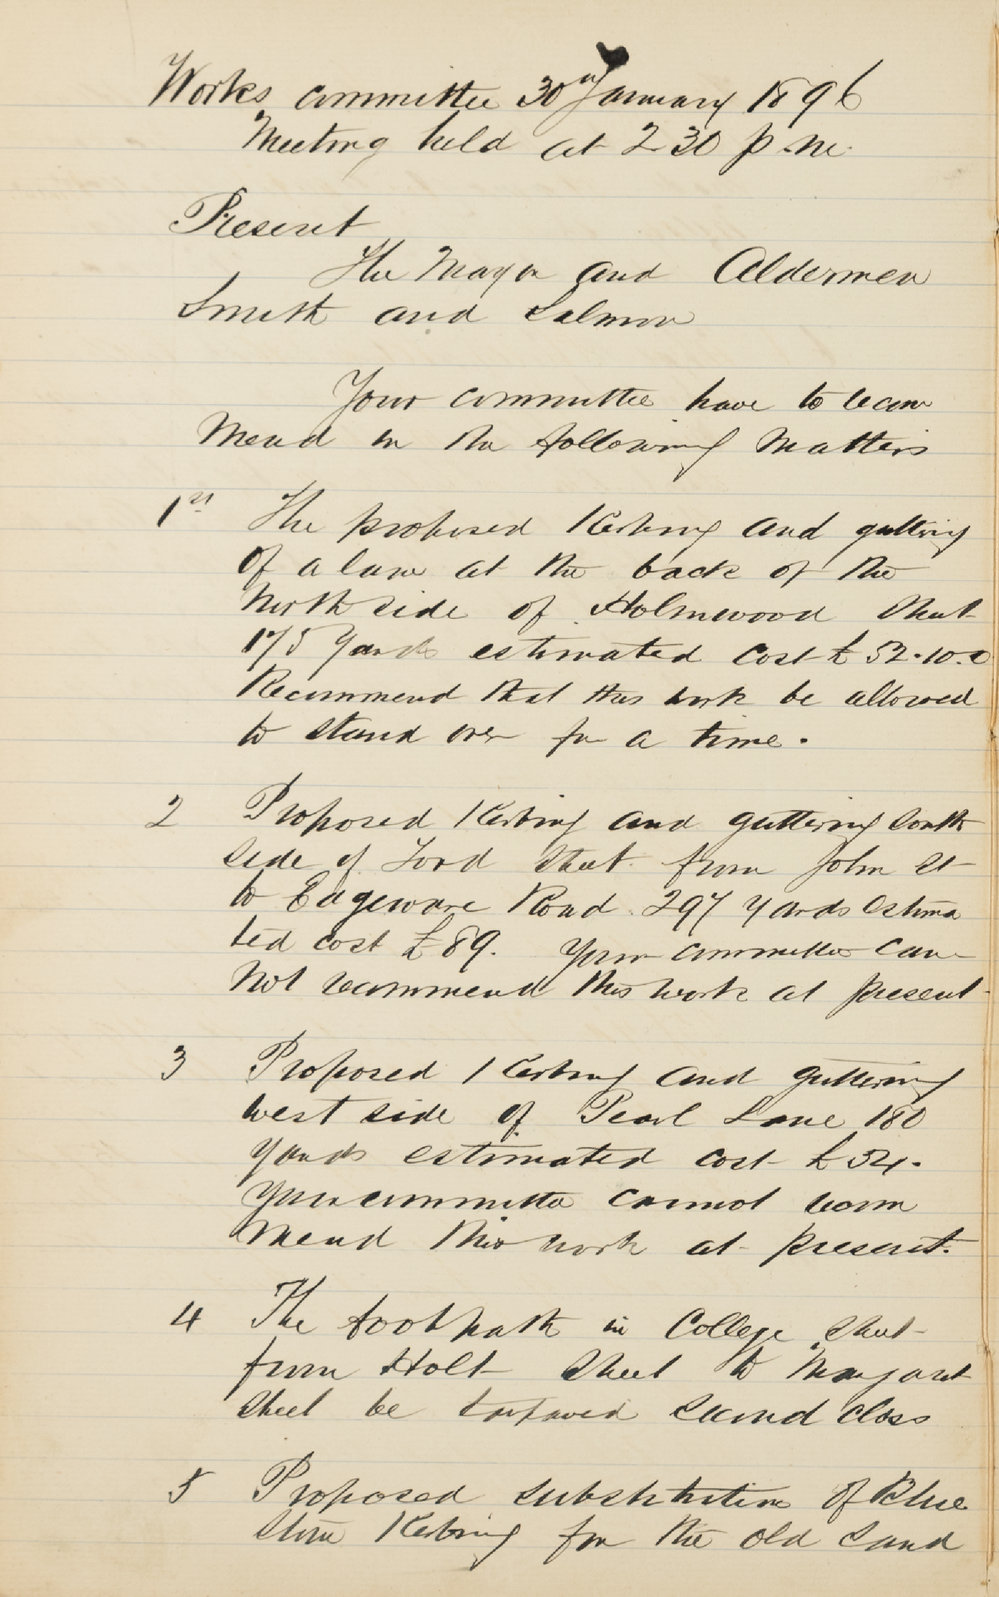 Works committee 30th January 1896
Meeting held at 2 30 p.m.
Present
The Mayor and Aldermen
Smith and Salmon
Your committee have to recom
mend in the following matters
1st The proposed Kerbing and guttering
of a lane at the back of the
North side of Holmwood Street
175 Yards estimated cost £52.10.0
Recommend that this work be allowed
to stand over for a time.
2 Proposed Kerbing and guttering South
side of Ford Street from John St
to Edgeware Road 297 yards Estima
ted cost £89. Your committee can
not recommend this work at present
3 Proposed Kerbing and guttering
west side of Pearl Lane 180
yards estimated cost £54.
Your committee cannot recom
mend this work at present.
4 The footpath in College Street
from Holt Street to Margaret
Street be tarpaved second class
5 Proposed substitution of Blue
Stone Kerbing for the old Sand